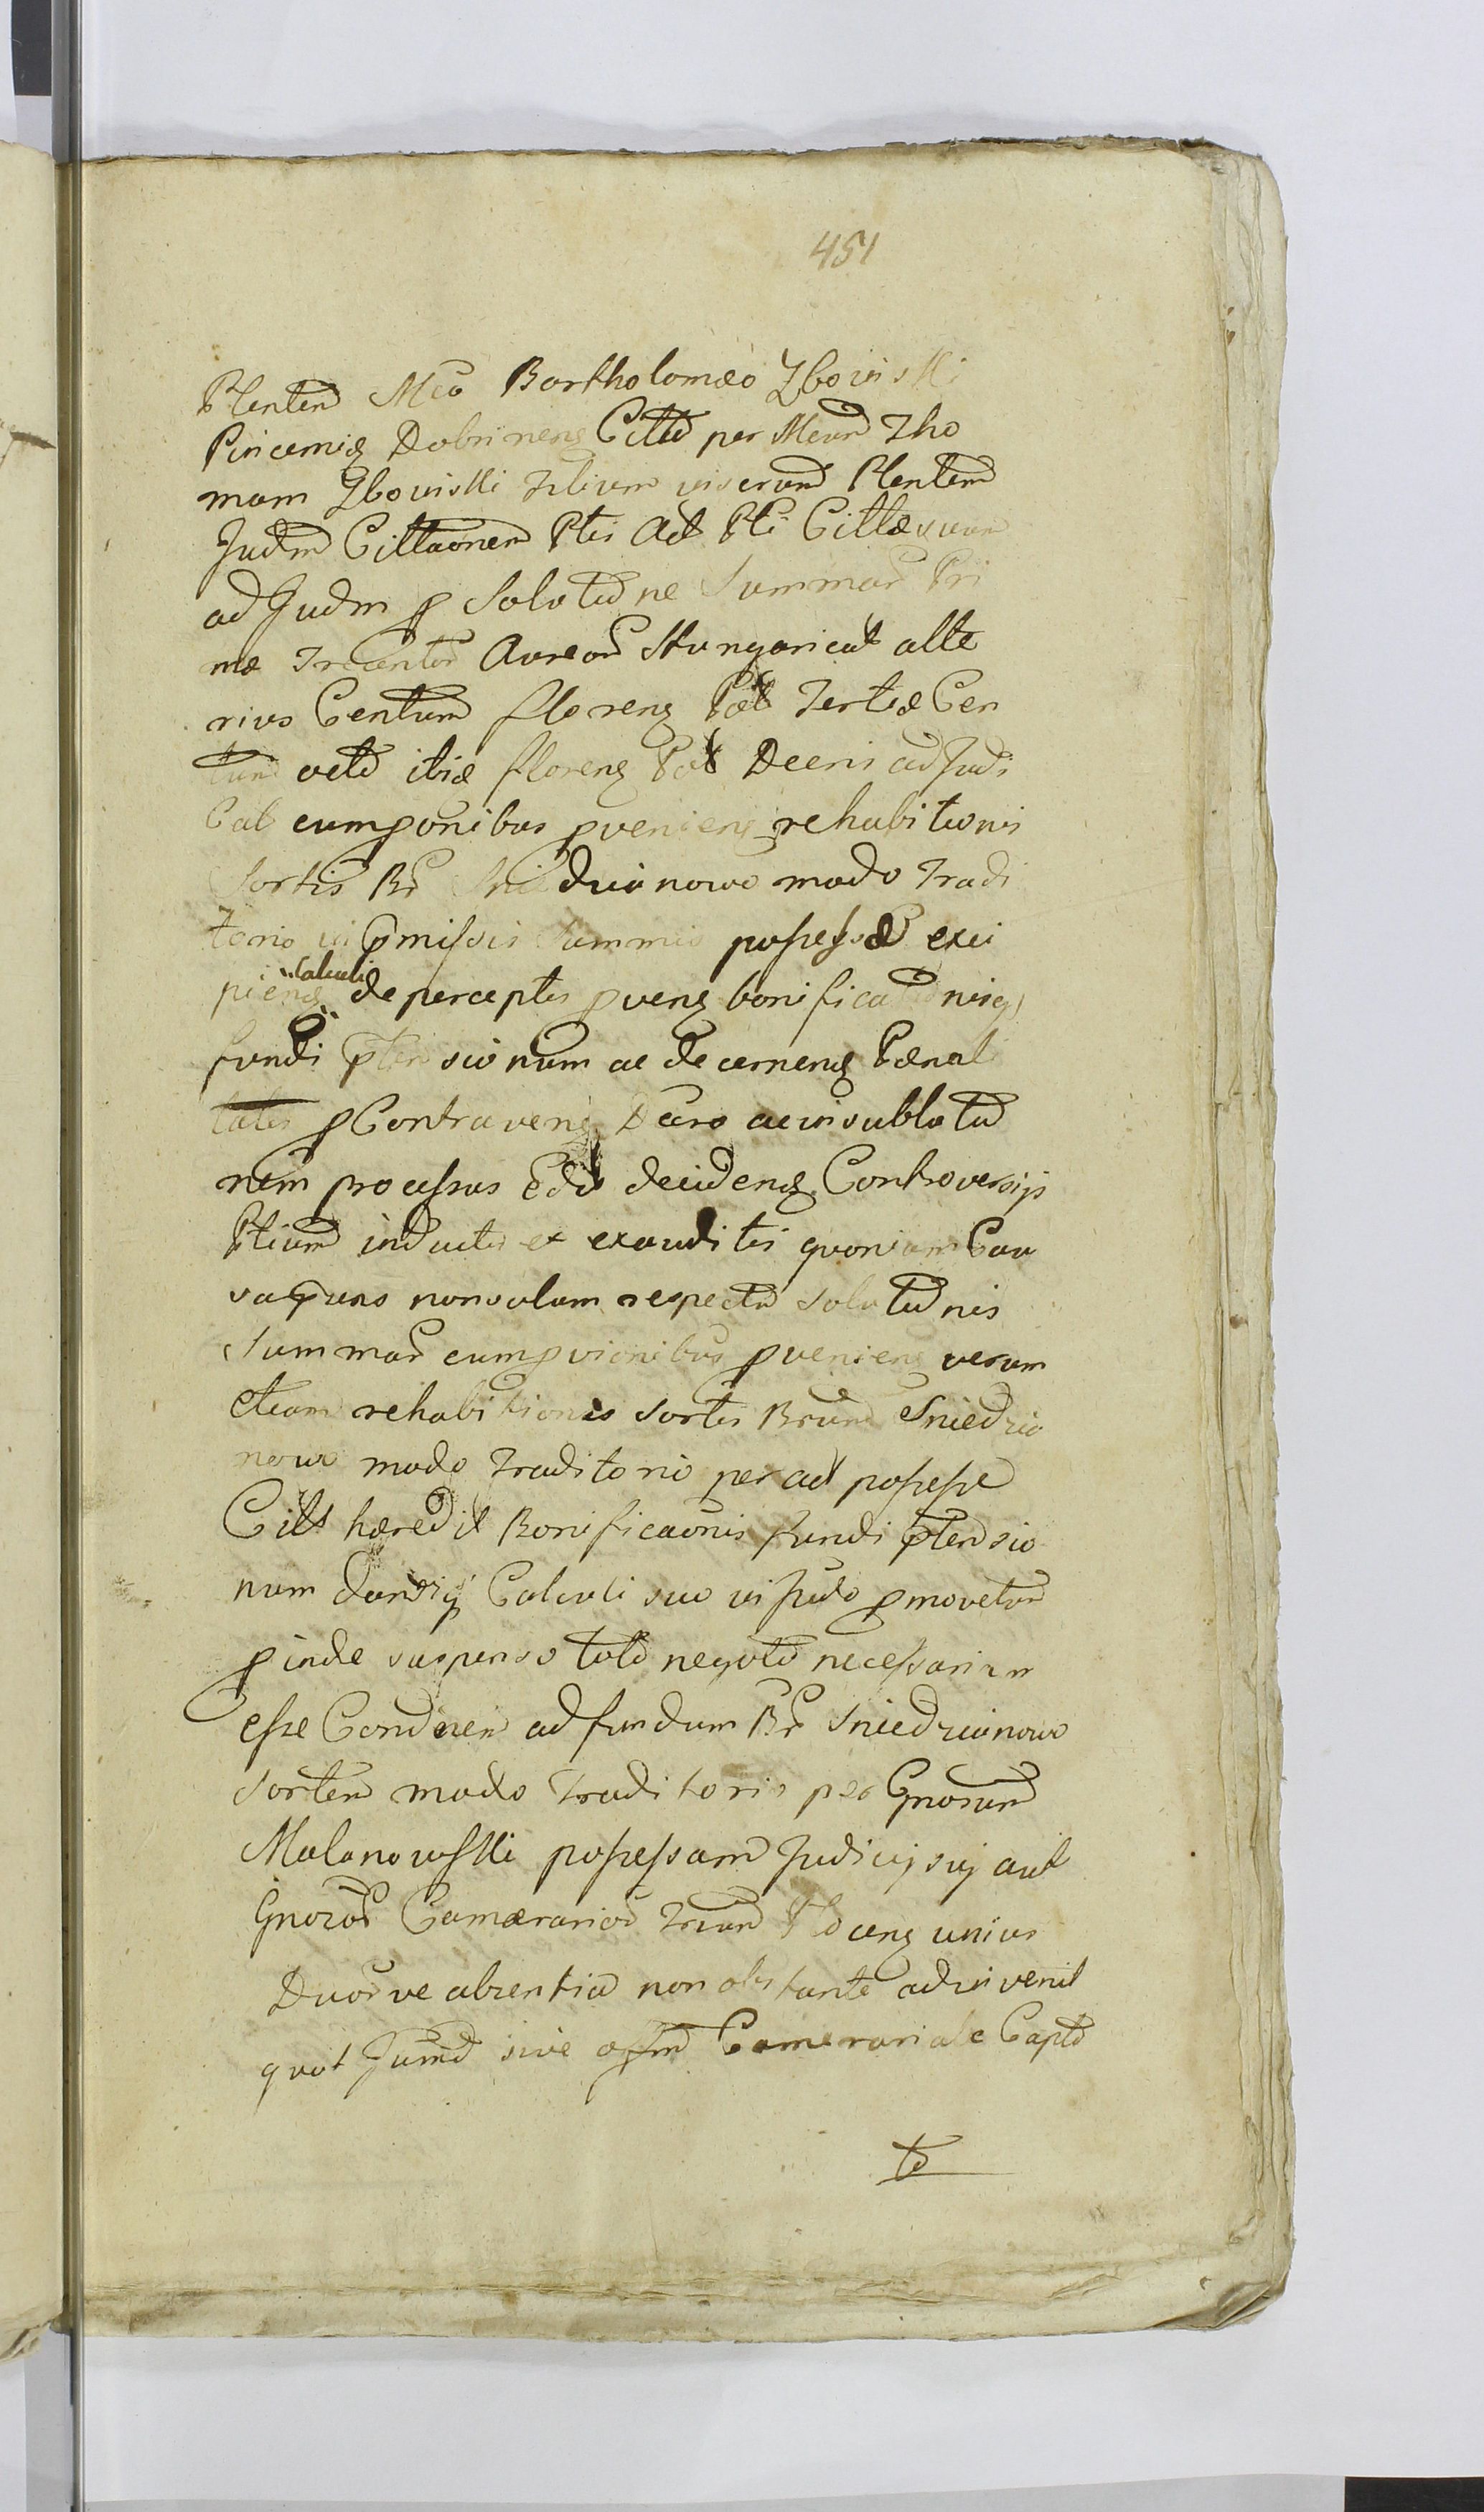 451
Ptentem Mco Bartholomæo Zbowiski
Pincernię Dobrinens Citto per Mcum Tho
mam Zbowiski Filium viscerum Ptentem
Judm Cittaonem Ptis Act Pti Cittæ suam
ad Judm p Solutione Summar Pri
mæ Trecentor Aureor Hungarical alte
rius Centum floreno Pol Tertiæ Cen
tum octo ibiæ floreno Pol Deeni ad Judi
Cat cum ponibus provenieno rehabitionis
Sortis Br Sniedzianowo modo Tradi
torio in pmissis summis possessæ exci
pieno Calculi de perceptis proveno bonificationisq
fundi ptensionum ac decerneno Pænali
tatis p Contraveno Dcro ac in sublatio
nem processus Edo decideno Controversijs
Ptium inductis et exauditis quoniam Cau
sa puns non solum respectu solutionis
Summar cum pvisionibus provenieno verum
etiam rehabitionis sortis Brum Sniedzia
nowo modo Traditorio per act possesse
Citt hæredit Bonificaonis fundi ptensio
num dandiq Calculi suo in Judo pmovetur
pinde suspenso toto negotio necessarium
esse Condnem ad fundum Br Sniedzianowo
Sortem modo traditorio per Gnosum
Malanowski possessam Judicij sui aut
Gnoror Camerarior Trium Pdceno unius
Duor ve absentia non obstante adinvenit
quot Judm sive offm Camerariale Capto
to